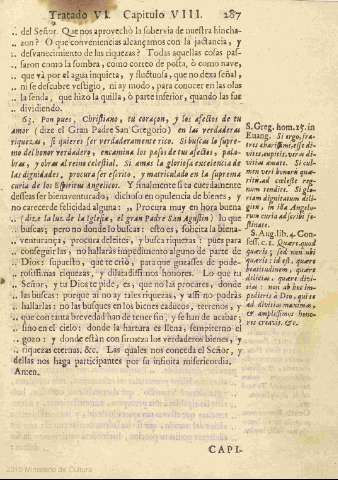 Tratado VI. Capitulo VIII. 287
,, del Señor. Que nos aprovechò la sobervia de nuestra hincha-
,, zon? O que conveniencias alcançamos con la jactancia, y
,, desvanecimiento de las riquezas? Todas aquellas cosas pas-
,, saron como la sombra, como correo de posta, ò como nave,
,, que và por el agua inquieta, y fluctuosa, que no dexa señal,
,, ni se descubre vestigio, ni ay modo, para conocer en las olas
,, la senda, que hizo la quilla, ò parte inferior, quando las fue
,, dividiendo.
63. Pon pues, Christiano, tu coraçon, y los afectos de tu
amor (dize el Gran Padre San Gregorio) en las verdaderas
riquezas, si quieres ser verdaderamente rico. Si buscas la supre-
mo del honor verdadero, encamina los passos de tu afectos, pala-
bras, y obras al reino celestial. Si amas la gloriosa excelencia de
las dignidades, procura ser escrito, y matriculado en la suprema
curia de los Espiritus Angelicos. Y finalmente si tu cuerdamente
desseas ser bienaventurado, dichoso en opulencia de bienes, y
no carecer de felicidad alguna: ò Procura muy en hora buena
,, (dize la luz de la Iglesia, el gran Padre San Agustin) lo que
,, buscas; pero no donde lo buscas: esto es, solicita la biena-
,, venturança, procura deleites, y busca riquezas: pues para
,, conseguir las, no hallaràs impedimento alguno de parte de
,, Dios: supuesto, que te criò, para que gozasses de pode-
,, rosissimas riquezas, y dilatadissimos honores. Lo que tu
,, Señor, y tu Dios te pide, es, que no las procures, donde
,, las buscas: porque ni ay tales riquezas, y assi no podràs
,, hallarlas: no las busques en los bienes caducos, terrenos, y
,, que con tanta brevedad han de tener fin, y se han de acabar:
,, sino en el cielo: donde la hartura es llena, sempiterno el
,, gozo: y donde estàn con firmeza los verdaderos bienes, y
,, riquezas eternas, &c. Las quales nos conceda el Señor, y
dellas nos haga participantes por su infinita misericordia,
Amen.
S. Greg. hom. 15. in
Euang. Si ergo, fra-
tres charissimi, esse di-
vites cupitis, veras di-
vitias amate. Si cul-
men veri honoris quæ-
ritis, ad cæleste reg-
num tendite. Si glo-
riam dignitatum dili-
gitis, in illa Angelo-
rum curia adscribi fe-
stinate.
S. Aug. lib. 4. Con-
fess. c. 1. Quære, quod
quæris; sed non ubi
quæris: id est, quære
beatitudinem, quære
delicias, quære divi-
tias: non ab hoc im-
pedieris à Deo, qui te
ad divitias maximas,
et amplissimos hono-
res creavit, &c.
CAPI-
2010 Ministerio de Cultura